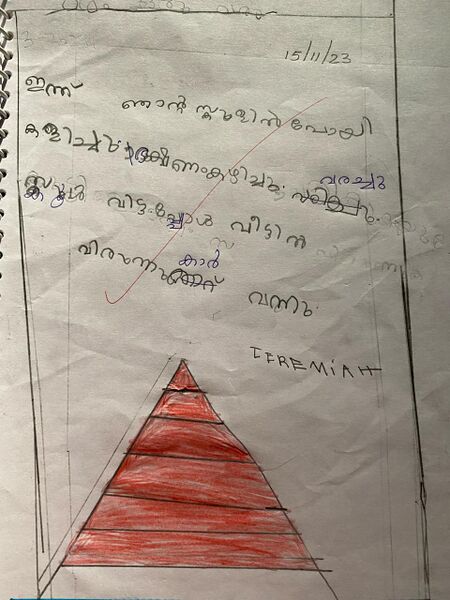 15/11/23
ഇന്ന് ഞാൻ സ്കൂളിൽ പോയി
കളിച്ചു. ഭക്ഷണം കഴിച്ചു. വരച്ചു
സ്കൂൾ വിട്ടപ്പോൾ വീട്ടിൽ
വിരുന്നുകാർ വന്നു.
JEREMIAH